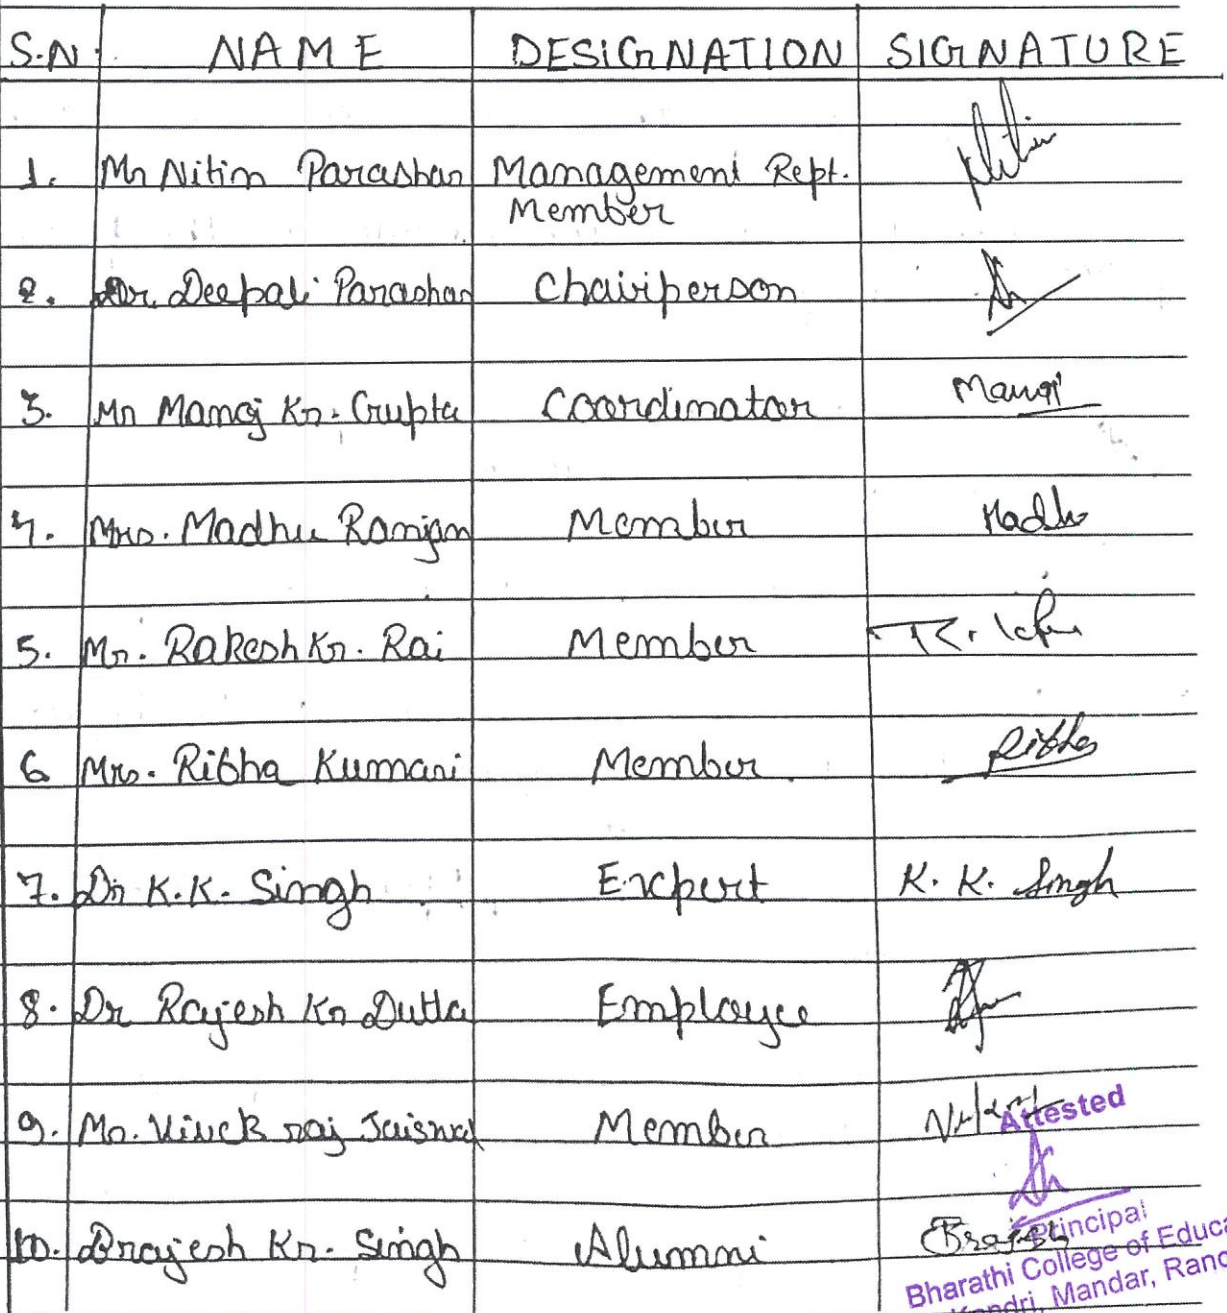 S.N. NAME DESIGNATION SIGNATURE
1. Mr Nitin Parashar Management Rept. Member Nitin
2. Dr. Deepali Parashar Chairperson
3. Mr Manoj Kr. Gupta Coordinator Manoj
4. Mrs. Madhu Ranjan Member Madhu
5. Mr. Rakesh Kr. Rai Member
6 Mrs. Ribha Kumari Member Ribha
7. Dr K.K. Singh Expert K. K. Singh
8. Dr Rajesh Kr Dutta Employee
9. Mr. Vivek raj Jaiswal Member
Attested
10. Brajesh Kr. Singh Alumni Brajesh
Principal
Bharathi College of Educa
Kandri, Mandar, Ranc